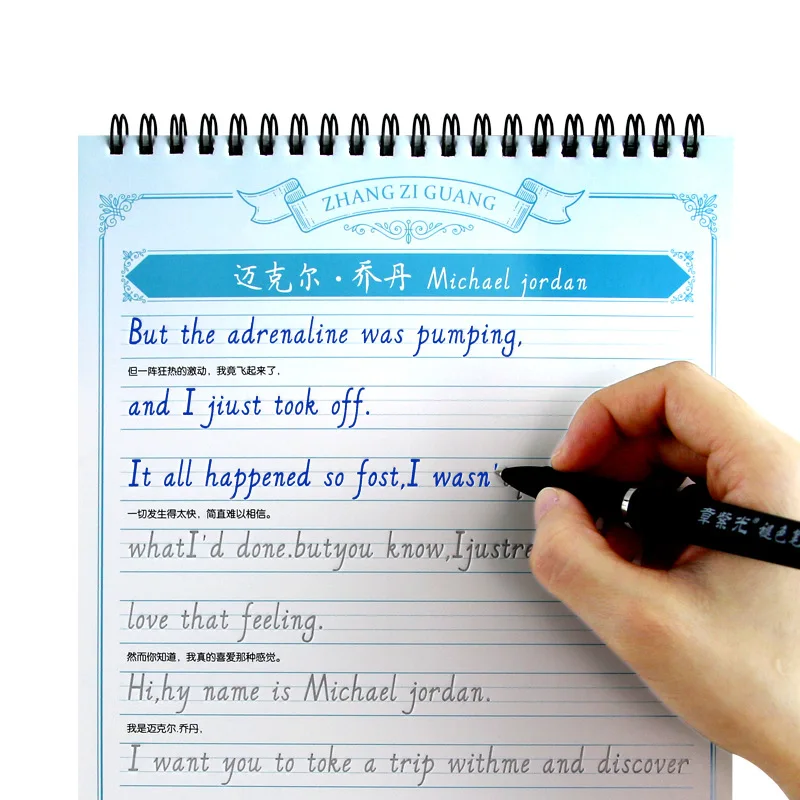 ZHANG ZI GUANG
迈克尔·乔丹 Michael jordan
But the adrenaline was pumping,
但一阵狂热的激动，我竟飞起来了，
and I jiust took off.
It all happened so fost,I wasn'
一切发生得太快，简直难以相信。
whatI'd done.butyou know,Ijustre
love that feeling.
然而你知道，我真的喜爱那种感觉。
Hi,hy name is Michael jordan.
我是迈克尔.乔丹，
I want you to toke a trip withme and discover
章紫光® 褪色笔